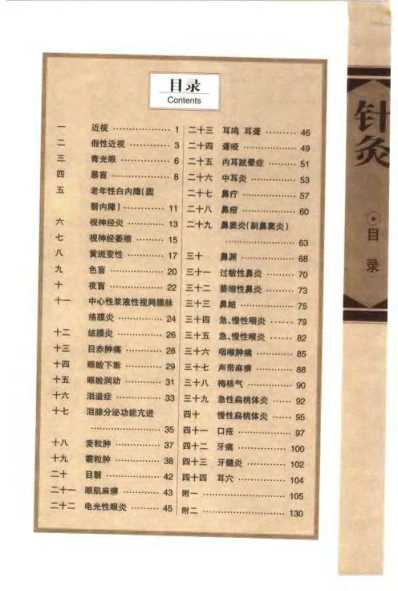 目录
Contents
一 近视 ………… 1
二 假性近视 ………… 3
三 青光眼 ………… 6
四 暴盲 ………… 8
五 老年性白内障(圆
翳内障) ………… 11
六 视神经炎 ………… 13
七 视神经萎缩 ………… 15
八 黄斑变性 ………… 17
九 色盲 ………… 20
十 夜盲 ………… 22
十一 中心性浆液性视网膜脉
络膜炎 ………… 24
十二 结膜炎 ………… 26
十三 目赤肿痛 ………… 28
十四 眼睑下垂 ………… 29
十五 眼睑润动 ………… 31
十六 泪溢症 ………… 33
十七 泪腺分泌功能亢进
………… 35
十八 麦粒肿 ………… 37
十九 霰粒肿 ………… 38
二十 目翳 ………… 42
二十一 眼肌麻痹 ………… 43
二十二 电光性眼炎 ………… 45
二十三 耳鸣 耳聋 ………… 46
二十四 聋哑 ………… 49
二十五 内耳眩晕症 ………… 51
二十六 中耳炎 ………… 53
二十七 鼻疔 ………… 57
二十八 鼻痔 ………… 60
二十九 鼻窦炎(副鼻窦炎)
………… 63
三十 鼻渊 ………… 68
三十一 过敏性鼻炎 ………… 70
三十二 萎缩性鼻炎 ………… 73
三十三 鼻衄 ………… 75
三十四 急、慢性咽炎 ………… 79
三十五 急、慢性喉炎 ………… 82
三十六 咽喉肿痛 ………… 85
三十七 声带麻痹 ………… 88
三十八 梅核气 ………… 90
三十九 急性扁桃体炎 ………… 92
四十 慢性扁桃体炎 ………… 95
四十一 口疮 ………… 97
四十二 牙痛 ………… 100
四十三 牙髓炎 ………… 102
四十四 耳穴 ………… 104
附一 ………… 105
附二 ………… 130
针灸
目录